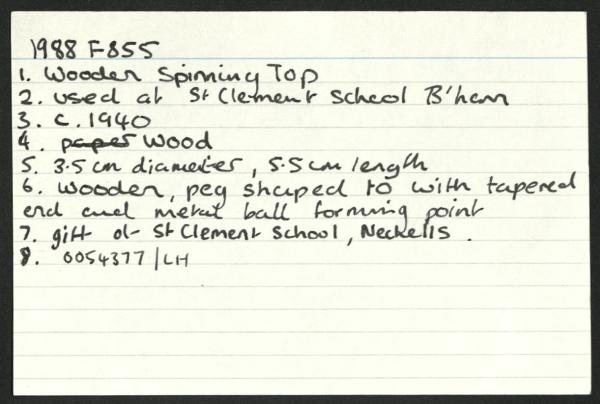 1988 F855
1. Wooden Spinning Top
2. used at St Clement School B'ham
3. c. 1940
4. paper Wood
5. 3.5 cm diameter, 5.5 cm length
6. Wooden, peg shaped to with tapered
end and metal ball forming point
7. gift of St Clement School, Nechells.
8. 0054377/LH